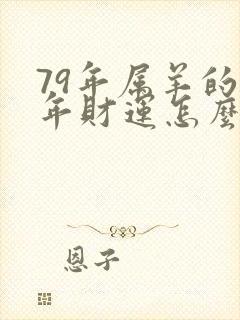 79年属羊的
年財運怎麼
恩子